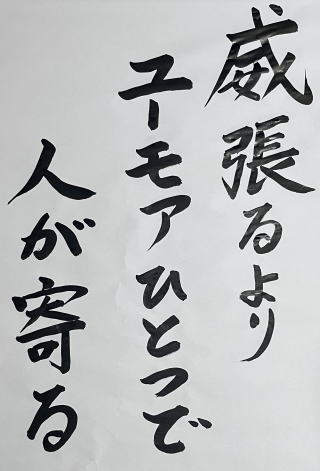 威張るより
ユーモアひとつで
人が寄る